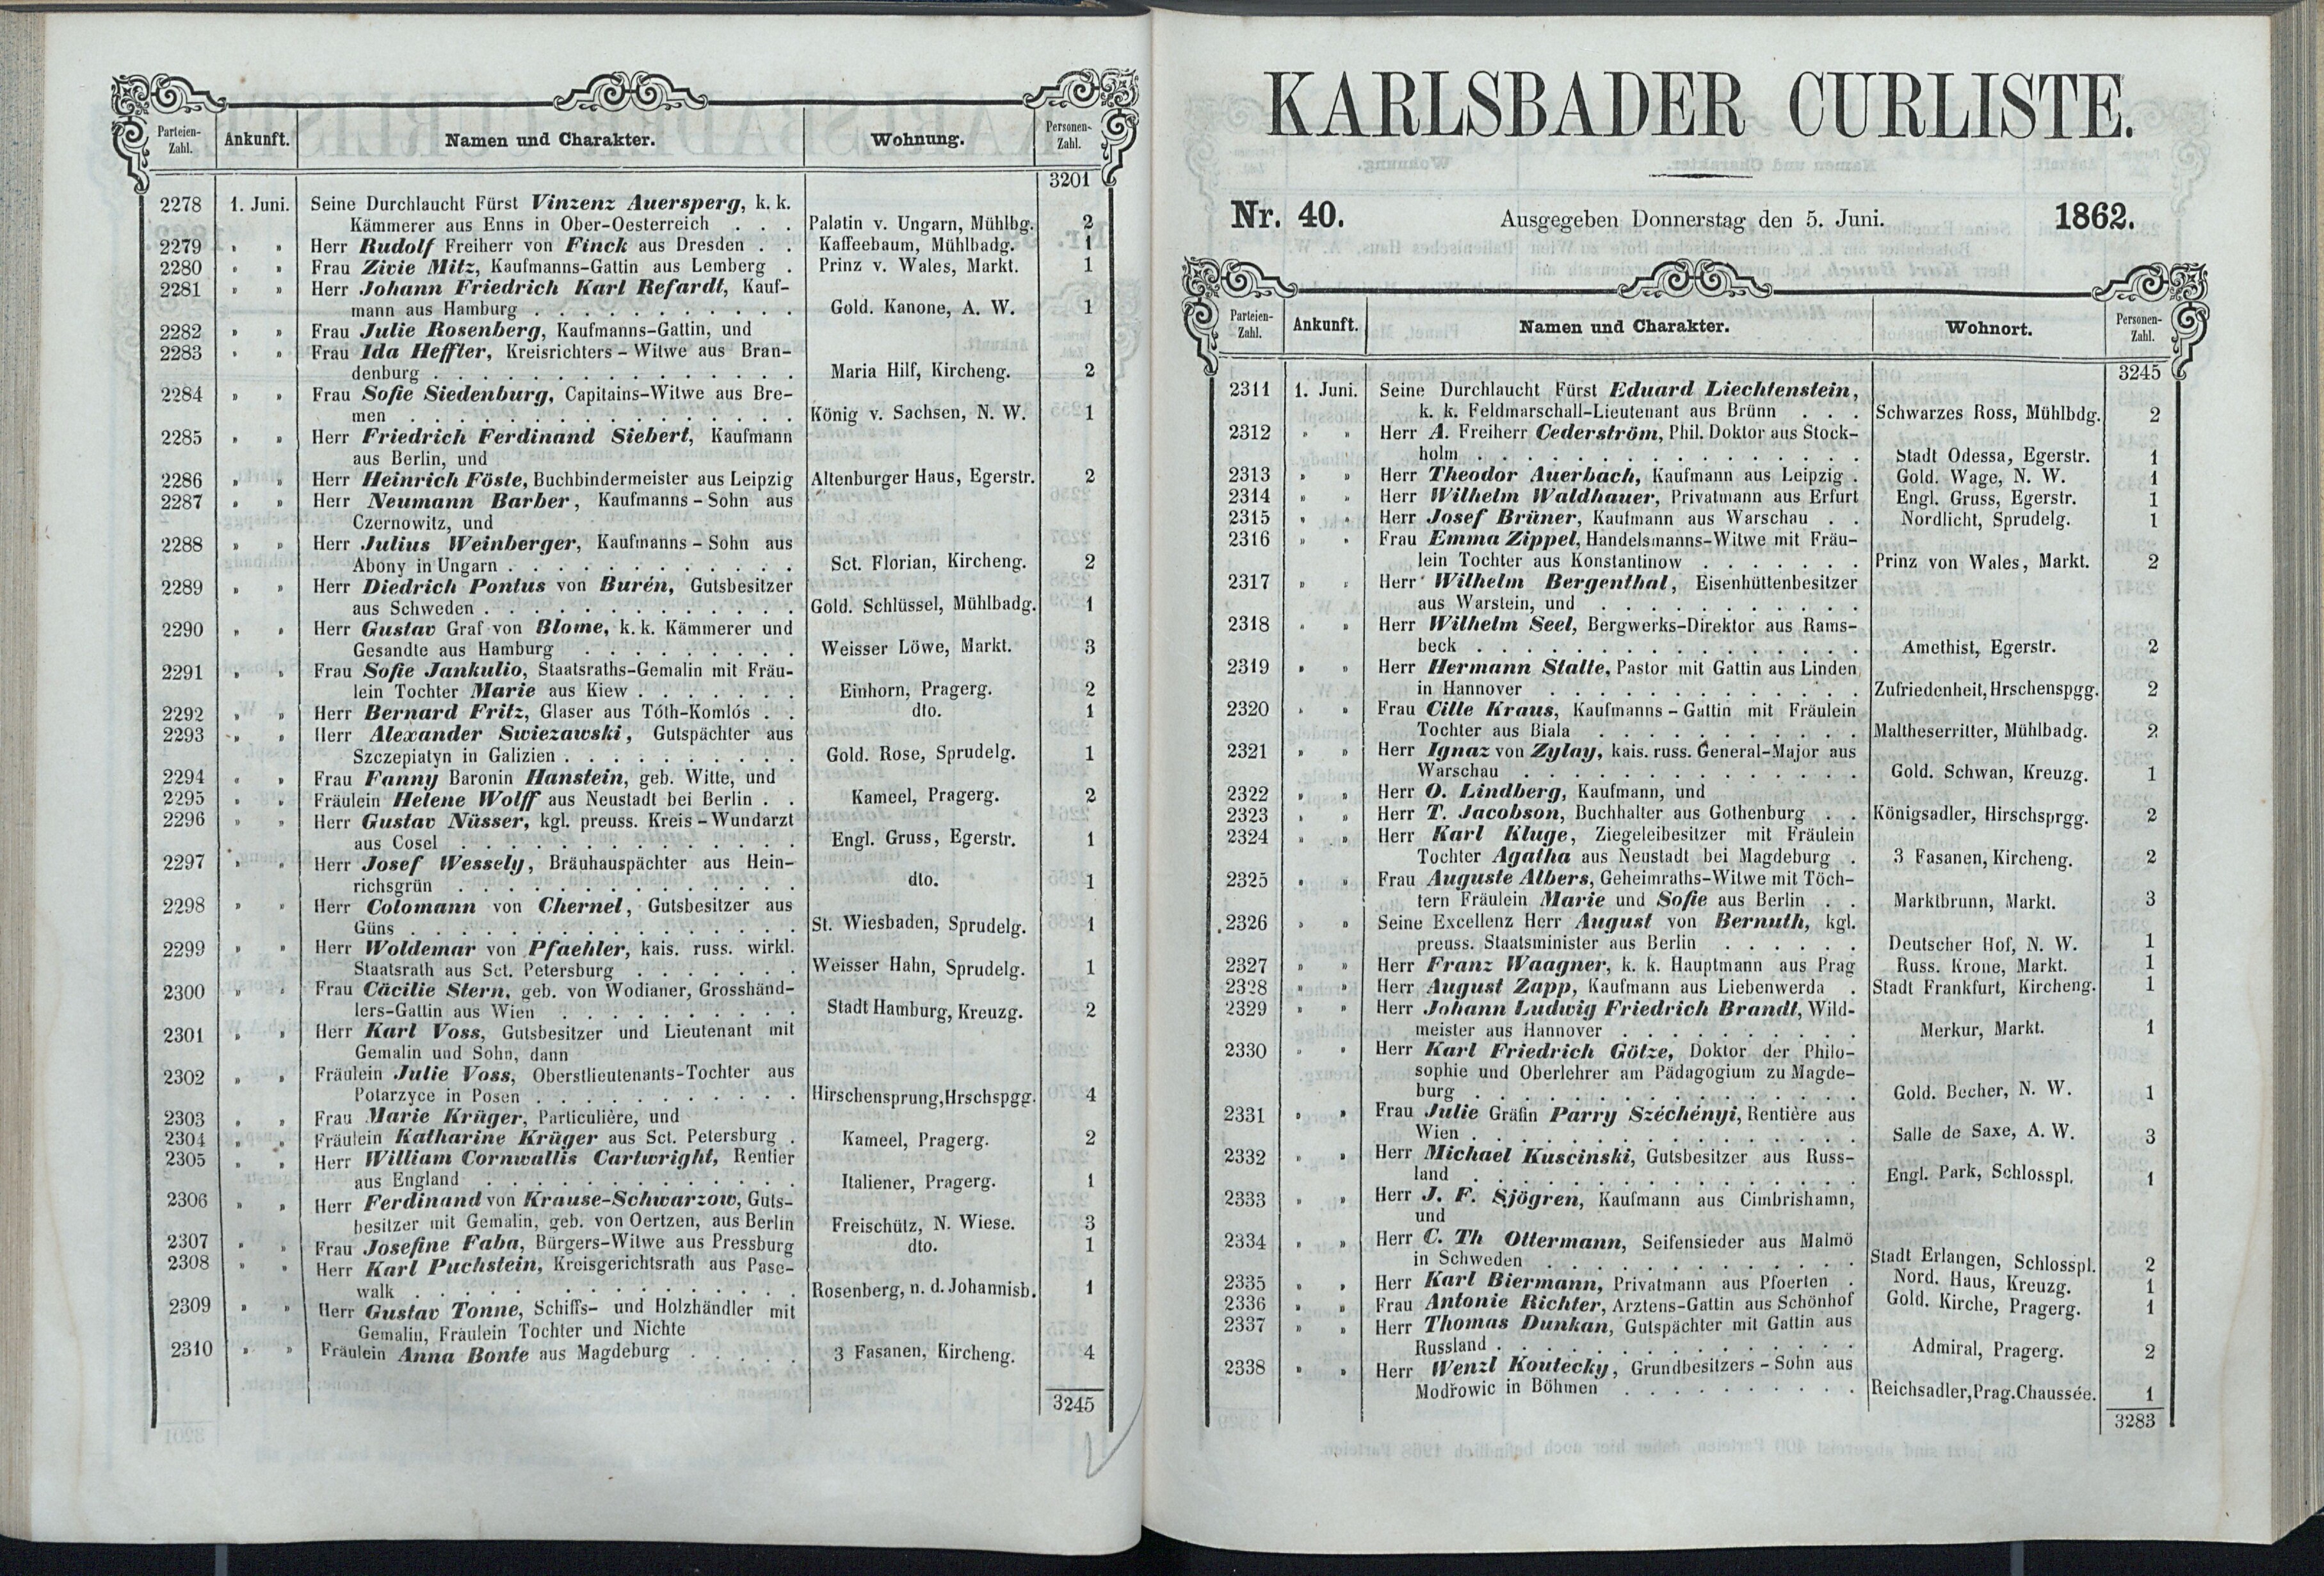 Parteien-Zahl. Ankunft. Namen und Charakter. Wohnung. Personen-Zahl.
3201
2278 1. Juni. Seine Durchlaucht Fürst Vinzenz Auersperg, k. k.
Kämmerer aus Enns in Ober-Oesterreich . . . Palatin v. Ungarn, Mühlbg. 2
2279 " " Herr Rudolf Freiherr von Finck aus Dresden . . Kaffeebaum, Mühlbadg. 1
2280 " " Frau Zivie Mitz, Kaufmanns-Gattin aus Lemberg . Prinz v. Wales, Markt. 1
2281 " " Herr Johann Friedrich Karl Refardt, Kauf-
mann aus Hamburg . . . . . . . . . . . Gold. Kanone, A. W. 1
2282 " " Frau Julie Rosenberg, Kaufmanns-Gattin, und
2283 " " Frau Ida Heffter, Kreisrichters-Witwe aus Bran-
denburg . . . . . . . . . . . . . . . Maria Hilf, Kircheng. 2
2284 " " Frau Sofie Siedenburg, Capitains-Witwe aus Bre-
men . . . . . . . . . . . . . . . . König v. Sachsen, N. W. 1
2285 " " Herr Friedrich Ferdinand Siebert, Kaufmann
aus Berlin, und
2286 " " Herr Heinrich Föste, Buchbindermeister aus Leipzig Altenburger Haus, Egerstr. 2
2287 " " Herr Neumann Barber, Kaufmanns-Sohn aus
Czernowitz, und
2288 " " Herr Julius Weinberger, Kaufmanns-Sohn aus
Abony in Ungarn . . . . . . . . . . . . Sct. Florian, Kircheng. 2
2289 " " Herr Diedrich Pontus von Burén, Gutsbesitzer
aus Schweden . . . . . . . . . . . . . Gold. Schlüssel, Mühlbadg. 1
2290 " " Herr Gustav Graf von Blome, k. k. Kämmerer und
Gesandte aus Hamburg . . . . . . . . . Weisser Löwe, Markt. 3
2291 " " Frau Sofie Jankulio, Staatsraths-Gemalin mit Fräu-
lein Tochter Marie aus Kiew . . . . . . . Einhorn, Pragerg. 2
2292 " " Herr Bernard Fritz, Glaser aus Tóth-Komlós . . dto. 1
2293 " " Herr Alexander Swiezawski, Gutspächter aus
Szczepiatyn in Galizien . . . . . . . . . . Gold. Rose, Sprudelg. 1
2294 " " Frau Fanny Baronin Hanstein, geb. Witte, und
2295 " " Fräulein Helene Wolff aus Neustadt bei Berlin . . Kameel, Pragerg. 2
2296 " " Herr Gustav Nüsser, kgl. preuss. Kreis-Wundarzt
aus Cosel . . . . . . . . . . . . . . Engl. Gruss, Egerstr. 1
2297 " " Herr Josef Wessely, Bräuhauspächter aus Hein-
richsgrün . . . . . . . . . . . . . . dto. 1
2298 " " Herr Colomann von Chernel, Gutsbesitzer aus
Güns . . . . . . . . . . . . . . . . St. Wiesbaden, Sprudelg. 1
2299 " " Herr Woldemar von Pfaehler, kais. russ. wirkl.
Staatsrath aus Sct. Petersburg . . . . . . . Weisser Hahn, Sprudelg. 1
2300 " " Frau Cäcilie Stern, geb. von Wodianer, Grosshänd-
lers-Gattin aus Wien . . . . . . . . . . Stadt Hamburg, Kreuzg. 2
2301 " " Herr Karl Voss, Gutsbesitzer und Lieutenant mit
Gemalin und Sohn, dann
2302 " " Fräulein Julie Voss, Oberstlieutenants-Tochter aus
Potarzyce in Posen . . . . . . . . . . . Hirschensprung,Hrschspgg. 4
2303 " " Frau Marie Krüger, Particulière, und
2304 " " Fräulein Katharine Krüger aus Sct. Petersburg . Kameel, Pragerg. 2
2305 " " Herr William Cornwallis Cartwright, Rentier
aus England . . . . . . . . . . . . . Italiener, Pragerg. 1
2306 " " Herr Ferdinand von Krause-Schwarzow, Guts-
besitzer mit Gemalin, geb. von Oertzen, aus Berlin Freischütz, N. Wiese. 3
2307 " " Frau Josefine Faba, Bürgers-Witwe aus Pressburg dto. 1
2308 " " Herr Karl Puchstein, Kreisgerichtsrath aus Pase-
walk . . . . . . . . . . . . . . . . Rosenberg, n. d. Johannisb. 1
2309 " " Herr Gustav Tonne, Schiffs- und Holzhändler mit
Gemalin, Fräulein Tochter und Nichte
2310 " " Fräulein Anna Bonte aus Magdeburg . . . . . 3 Fasanen, Kircheng. 4
3245
KARLSBADER CURLISTE.
Nr. 40. Ausgegeben Donnerstag den 5. Juni. 1862.
Parteien-Zahl. Ankunft. Namen und Charakter. Wohnort. Personen-Zahl.
3245
2311 1. Juni. Seine Durchlaucht Fürst Eduard Liechtenstein,
k. k. Feldmarschall-Lieutenant aus Brünn . . . Schwarzes Ross, Mühlbdg. 2
2312 " " Herr A. Freiherr Cederström, Phil. Doktor aus Stock-
holm . . . . . . . . . . . . . . . . Stadt Odessa, Egerstr. 1
2313 " " Herr Theodor Auerbach, Kaufmann aus Leipzig . Gold. Wage, N. W. 1
2314 " " Herr Wilhelm Waldhauer, Privatmann aus Erfurt Engl. Gruss, Egerstr. 1
2315 " " Herr Josef Brüner, Kaufmann aus Warschau . . Nordlicht, Sprudelg. 1
2316 " " Frau Emma Zippel, Handelsmanns-Witwe mit Fräu-
lein Tochter aus Konstantinow . . . . . . . Prinz von Wales, Markt. 2
2317 " " Herr Wilhelm Bergenthal, Eisenhüttenbesitzer
aus Warstein, und . . . . . . . . . . .
2318 " " Herr Wilhelm Seel, Bergwerks-Direktor aus Rams-
beck . . . . . . . . . . . . . . . . Amethist, Egerstr. 2
2319 " " Herr Hermann Stalte, Pastor mit Gattin aus Linden
in Hannover . . . . . . . . . . . . . Zufriedenheit,Hrschenspgg. 2
2320 " " Frau Cille Kraus, Kaufmanns-Gattin mit Fräulein
Tochter aus Biala . . . . . . . . . . . Maltheserritter, Mühlbadg. 2
2321 " " Herr Ignaz von Zylay, kais. russ. General-Major aus
Warschau . . . . . . . . . . . . . . Gold. Schwan, Kreuzg. 1
2322 " " Herr O. Lindberg, Kaufmann, und
2323 " " Herr T. Jacobson, Buchhalter aus Gothenburg . . Königsadler, Hirschsprgg. 2
2324 " " Herr Karl Kluge, Ziegeleibesitzer mit Fräulein
Tochter Agatha aus Neustadt bei Magdeburg . 3 Fasanen, Kircheng. 2
2325 " " Frau Auguste Albers, Geheimraths-Witwe mit Töch-
tern Fräulein Marie und Sofie aus Berlin . . Marktbrunn, Markt. 3
2326 " " Seine Excellenz Herr August von Bernuth, kgl.
preuss. Staatsminister aus Berlin . . . . . . Deutscher Hof, N. W. 1
2327 " " Herr Franz Waagner, k. k. Hauptmann aus Prag Russ. Krone, Markt. 1
2328 " " Herr August Zapp, Kaufmann aus Liebenwerda . Stadt Frankfurt, Kircheng. 1
2329 " " Herr Johann Ludwig Friedrich Brandt, Wild-
meister aus Hannover . . . . . . . . . . Merkur, Markt. 1
2330 " " Herr Karl Friedrich Götze, Doktor der Philo-
sophie und Oberlehrer am Pädagogium zu Magde-
burg . . . . . . . . . . . . . . . . Gold. Becher, N. W. 1
2331 " " Frau Julie Gräfin Parry Széchényi, Rentière aus
Wien . . . . . . . . . . . . . . . . Salle de Saxe, A. W. 3
2332 " " Herr Michael Kuscinski, Gutsbesitzer aus Russ-
land . . . . . . . . . . . . . . . . Engl. Park, Schlosspl. 1
2333 " " Herr J. F. Sjögren, Kaufmann aus Cimbrishamn,
und
2334 " " Herr C. Th Ottermann, Seifensieder aus Malmö
in Schweden . . . . . . . . . . . . . Stadt Erlangen, Schlosspl. 2
2335 " " Herr Karl Biermann, Privatmann aus Pfoerten . Nord. Haus, Kreuzg. 1
2336 " " Frau Antonie Richter, Arztens-Gattin aus Schönhof Gold. Kirche, Pragerg. 1
2337 " " Herr Thomas Dunkan, Gutspächter mit Gattin aus
Russland . . . . . . . . . . . . . . . Admiral, Pragerg. 2
2338 " " Herr Wenzl Koutecky, Grundbesitzers-Sohn aus
Modřowic in Böhmen . . . . . . . . . . Reichsadler,Prag.Chaussée. 1
3283